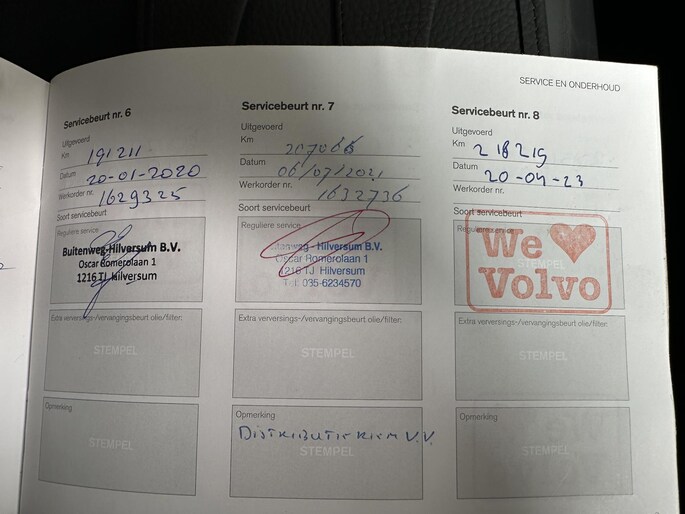 SERVICE EN ONDERHOUD
Servicebeurt nr. 6
Uitgevoerd
Km 191211
Datum 20-01-2020
Werkorder nr. 1629325
Soort servicebeurt
Reguliere service
Buitenweg-Hilversum B.V.
Oscar Romerolaan 1
1216 TJ Hilversum
Extra verversings-/vervangingsbeurt olie/filter:
STEMPEL
Opmerking
STEMPEL
Servicebeurt nr. 7
Uitgevoerd
Km 207066
Datum 06/07/2021
Werkorder nr. 1632736
Soort servicebeurt
Reguliere service
-Hilversum B.V.
Oscar Romerolaan 1
1216 TJ Hilversum
Tel: 035-6234570
Extra verversings-/vervangingsbeurt olie/filter:
STEMPEL
Opmerking
DISTRIBUTIERIEM V.V.
STEMPEL
Servicebeurt nr. 8
Uitgevoerd
Km 218219
Datum 20-04-23
Werkorder nr.
Soort servicebeurt
Reguliere service
We
STEMPEL
Volvo
Extra verversings-/vervangingsbeurt olie/filter:
STEMPEL
Opmerking
STEMPEL